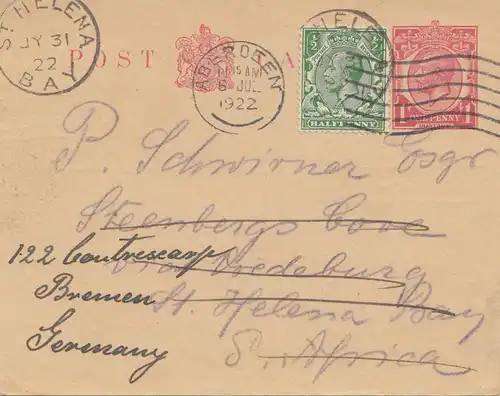 ST. HELENA
JY 31
22
BAY
POST
A
ABERDEEN
11 15 AM
6 JUL
1922
HALFPENNY
HELENA
ONE PENNY
P. Schwirner Esqr
Steenbergs Cove
via Vredeburg
St. Helena Bay
S. Africa
122 Contrescarp
Bremen
Germany